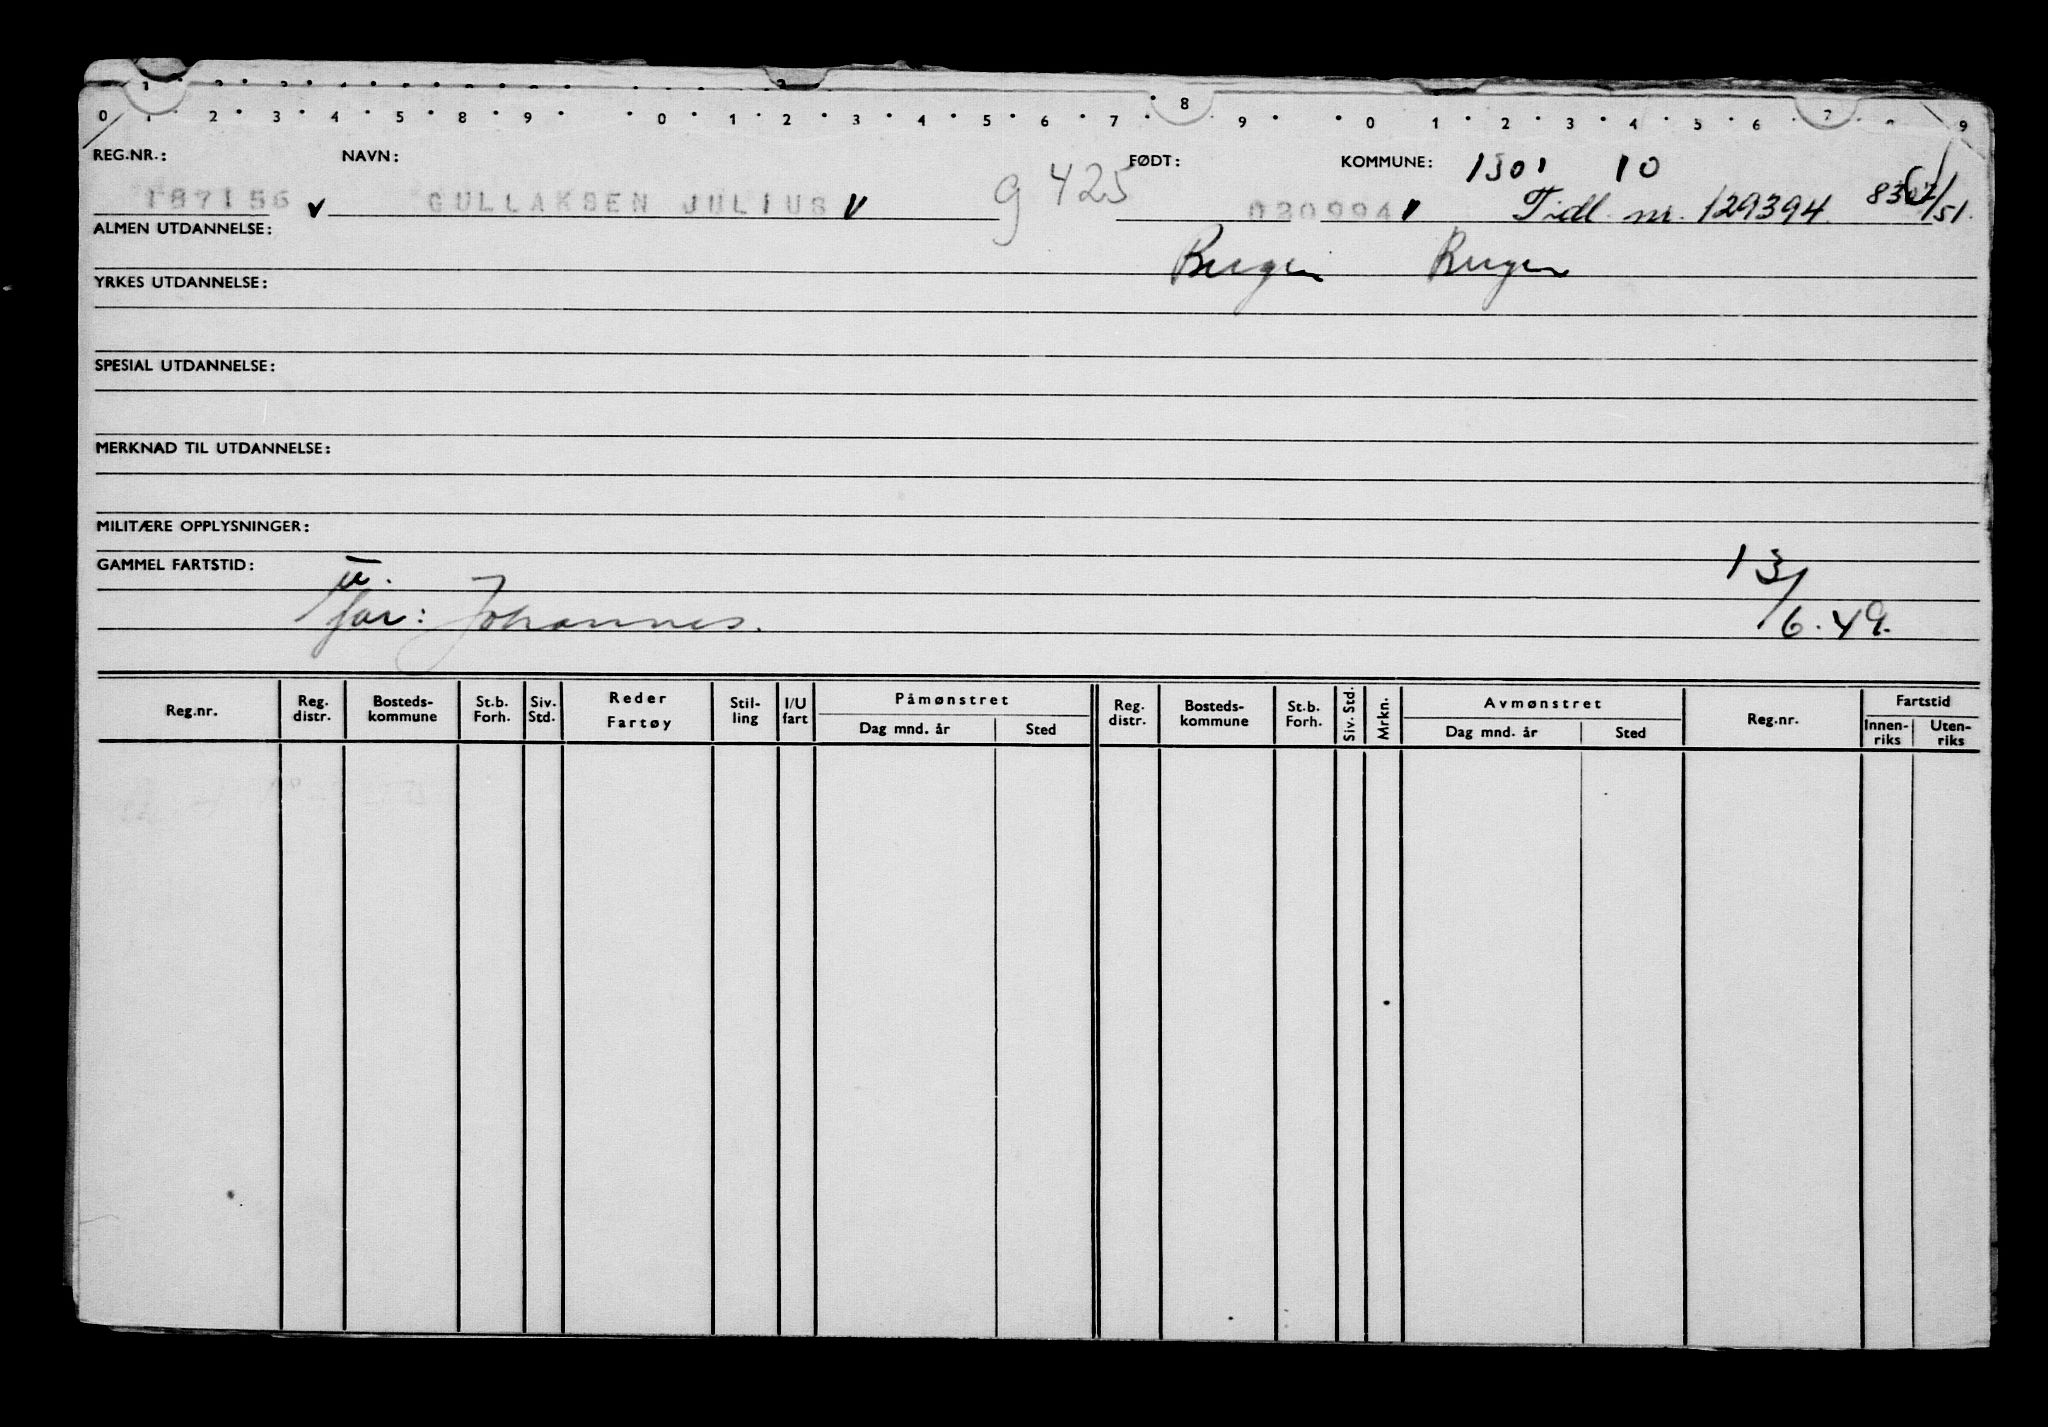 1 2 3 4 5 6 7 8 9 2
0 1 2 3 4 5 8 9 0 1 2 3 4 5 6 7 8 9 0 1 2 3 4 5 6 7 9
REG.NR.: NAVN: g 425 FØDT: KOMMUNE: 1301 10
187156 v GULLAKSEN JULIUS v 020994 v Tidl. nr. 129394 /51.
ALMEN UTDANNELSE: Bergen Bergen
YRKES UTDANNELSE:
SPESIAL UTDANNELSE:
MERKNAD TIL UTDANNELSE:
MILITÆRE OPPLYSNINGER:
GAMMEL FARTSTID: 13/6.49.
far: Johannes.
Reg.nr. Reg. distr. Bosteds-kommune St.b. Forh. Siv. Std. Reder Fartøy Stil-ling I/U fart Påmønstret Dag mnd. år Sted Reg. distr. Bosteds-kommune St.b. Forh. Siv. Std. Mrkn. Avmønstret Dag mnd. år Sted Reg.nr. Fartstid Innen-riks Uten-riks